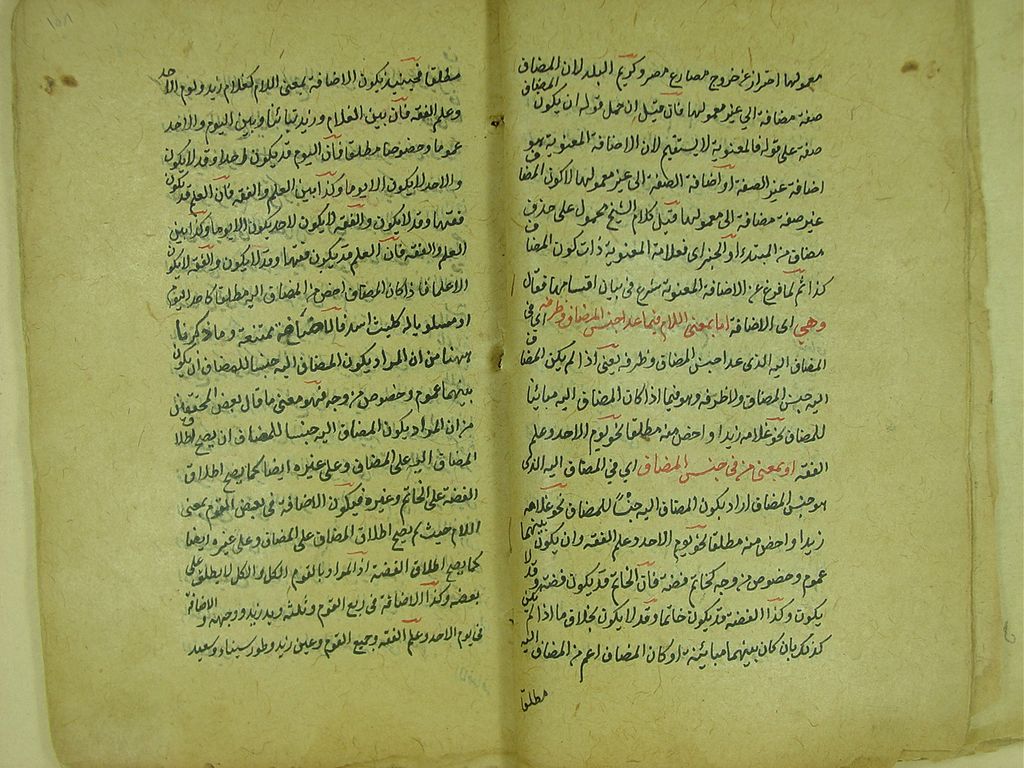 معمولها احتراز عن خروج مصارع مصر وكريم البلد لان المضاف
صفة مضافة الى غير معمولها فان قيل ان حمل قوله ان يكون المضاف
صفة على قوله فالمعنوية لا يستقيم لان الاضافة المعنوية هو
اضافة غير الصفة او اضافة الصفة الى غير معمولها لا كون المضاف
غير صفة مضافة الى معمولها قيل كلام الشيخ محمول على حذف
مضاف من المبتدء او الخبر اى فعلامة المعنوية ذات كون المضاف
كذا ثم لما فرغ عن الاضافة المعنوية شرع فى بيان اقسامها فقال
وهي اى الاضافة اما بمعنى اللام فيما عدا جنس المضاف وظرفه اى فى
المضاف اليه الذى عدا جنس المضاف وظرفه يعنى اذا لم يكن المضاف
اليه جنس المضاف ولا ظرفه وهو فيما اذا كان المضاف اليه مباينا
للمضاف نحو غلام زيد او اخص منه مطلقا نحو يوم الاحد وعلم
الفقه او بمعنى من فى جنس المضاف اي في المضاف اليه الذى
هو جنس المضاف اراد بكون المضاف اليه جنسا للمضاف نحو غلام
زيد او اخص منه مطلقا نحو يوم الاحد وعلم الفقه وان يكون بينهما
عموم وخصوص من وجه كخاتم فضة فان الخاتم قد يكون فضة وقد لا
يكون وكذا الفضة قد يكون خاتما وقد لا يكون بخلاف ما اذا لم يكن
كذلك بان كان بينهما مباينة او كان المضاف اعم من المضاف اليه
مطلقا
مطلقا فحينئذ يكون الاضافة بمعنى اللام كغلام زيد ويوم الاحد
وعلم الفقه فان بين الغلام وزيد تباينا وبين اليوم والاحد
عموما وخصوصا مطلقا فان اليوم قد يكون احدا وقد لا يكون
والاحد لا يكون الا يوما وكذا بين العلم والفقه فان العلم قد يكون
فقها وقد لا يكون والفقه لا يكون لاحد يكون الا يوما وكذا بين
العلم والفقه فان العلم قد يكون فقها وقد لا يكون والفقه لا يكون
الا علما فاذا كان المضاف اخص من المضاف اليه مطلقا كاحد اليوم
او مساويا له كليث اسد فالاضافة ممتنعة وما ذكرنا
ههنا من ان المراد بكون المضاف اليه جنسا للمضاف ان يكون
بينهما عموم وخصوص من وجه فهو معنى ما قال بعض المحققين
من ان المراد بكون المضاف اليه جنسا للمضاف ان يصح اطلاق
المضاف اليه على المضاف وعلى غيره ايضا كما يصح اطلاق
الفضة على الخاتم وغيره فيكون الاضافة في بعض القوم بمعنى
اللام حيث لم يصح اطلاق المضاف على المضاف وعلى غيره ايضا
كما يصح اطلاق الفضة اذ المراد بالقوم الكل والكل لا يطلق على
بعضه وكذا الاضافة فى ربع القوم وثلثه ويد زيد ووجهه والاضافة
فى يوم الاحد وعلم الفقه وجميع القوم وعين زيد وطور سيناء وسعيد